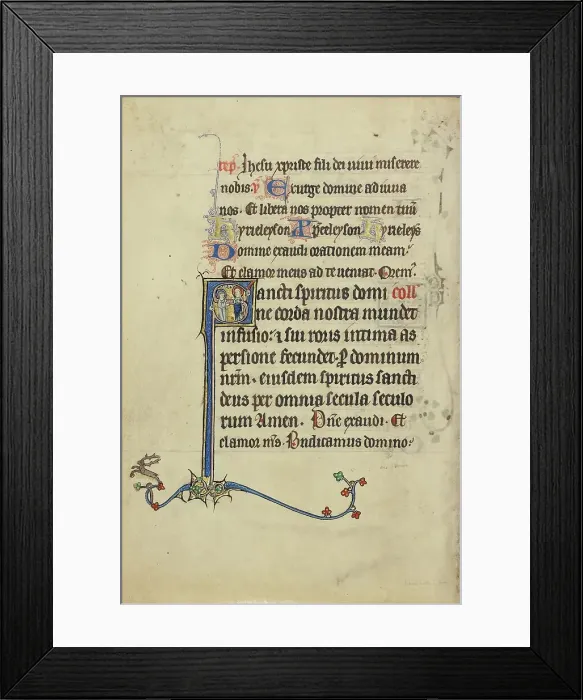 rep̄. Jhesu xpriste fili dei uiui miserere
nobis. ℣ Exurge domine adiuua
nos. Et libera nos propter nomen tuū
kyrieleyson Xp̄eeleyson kyrieleyſ
Domine exaudi orationem meam.
Et clamor meus ad te ueniat. Orem̄.
Sancti spiritus domī coll
ne corda nostra mundet
infusio: ⁊ sui roris intima as
persione fecundet. P̱ dominum
nr̄m. eiusdem spiritus sancti
deus per omnia secula seculo
rum Amen. Dn̄e exaudi. Et
clamor m̄s. Bndicamus domino: